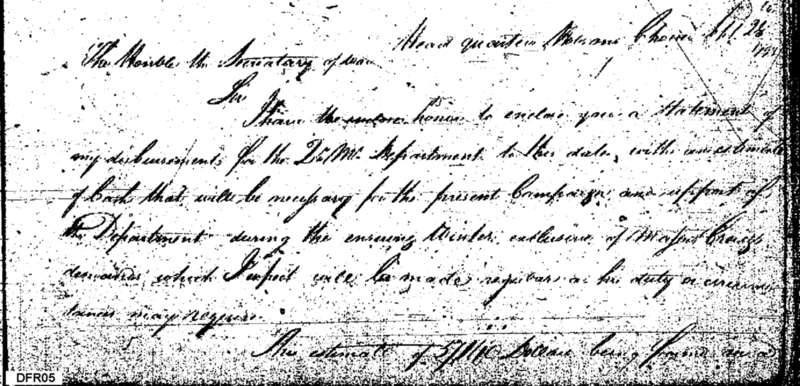 Head quarters
The Honble the Secretary of War
Sir
I have the honor to enclose you a Statement of
my disbursements for the Qr Mr Department to this date, with an estimate
of Cash that will be necessary for the present Campaign and support of
the Department during the ensuing Winter, exclusive of Major Craigs
demands which I expect will be made regular as his duty or circums
tances may require.
The estimate of Dollars being found
DFR05